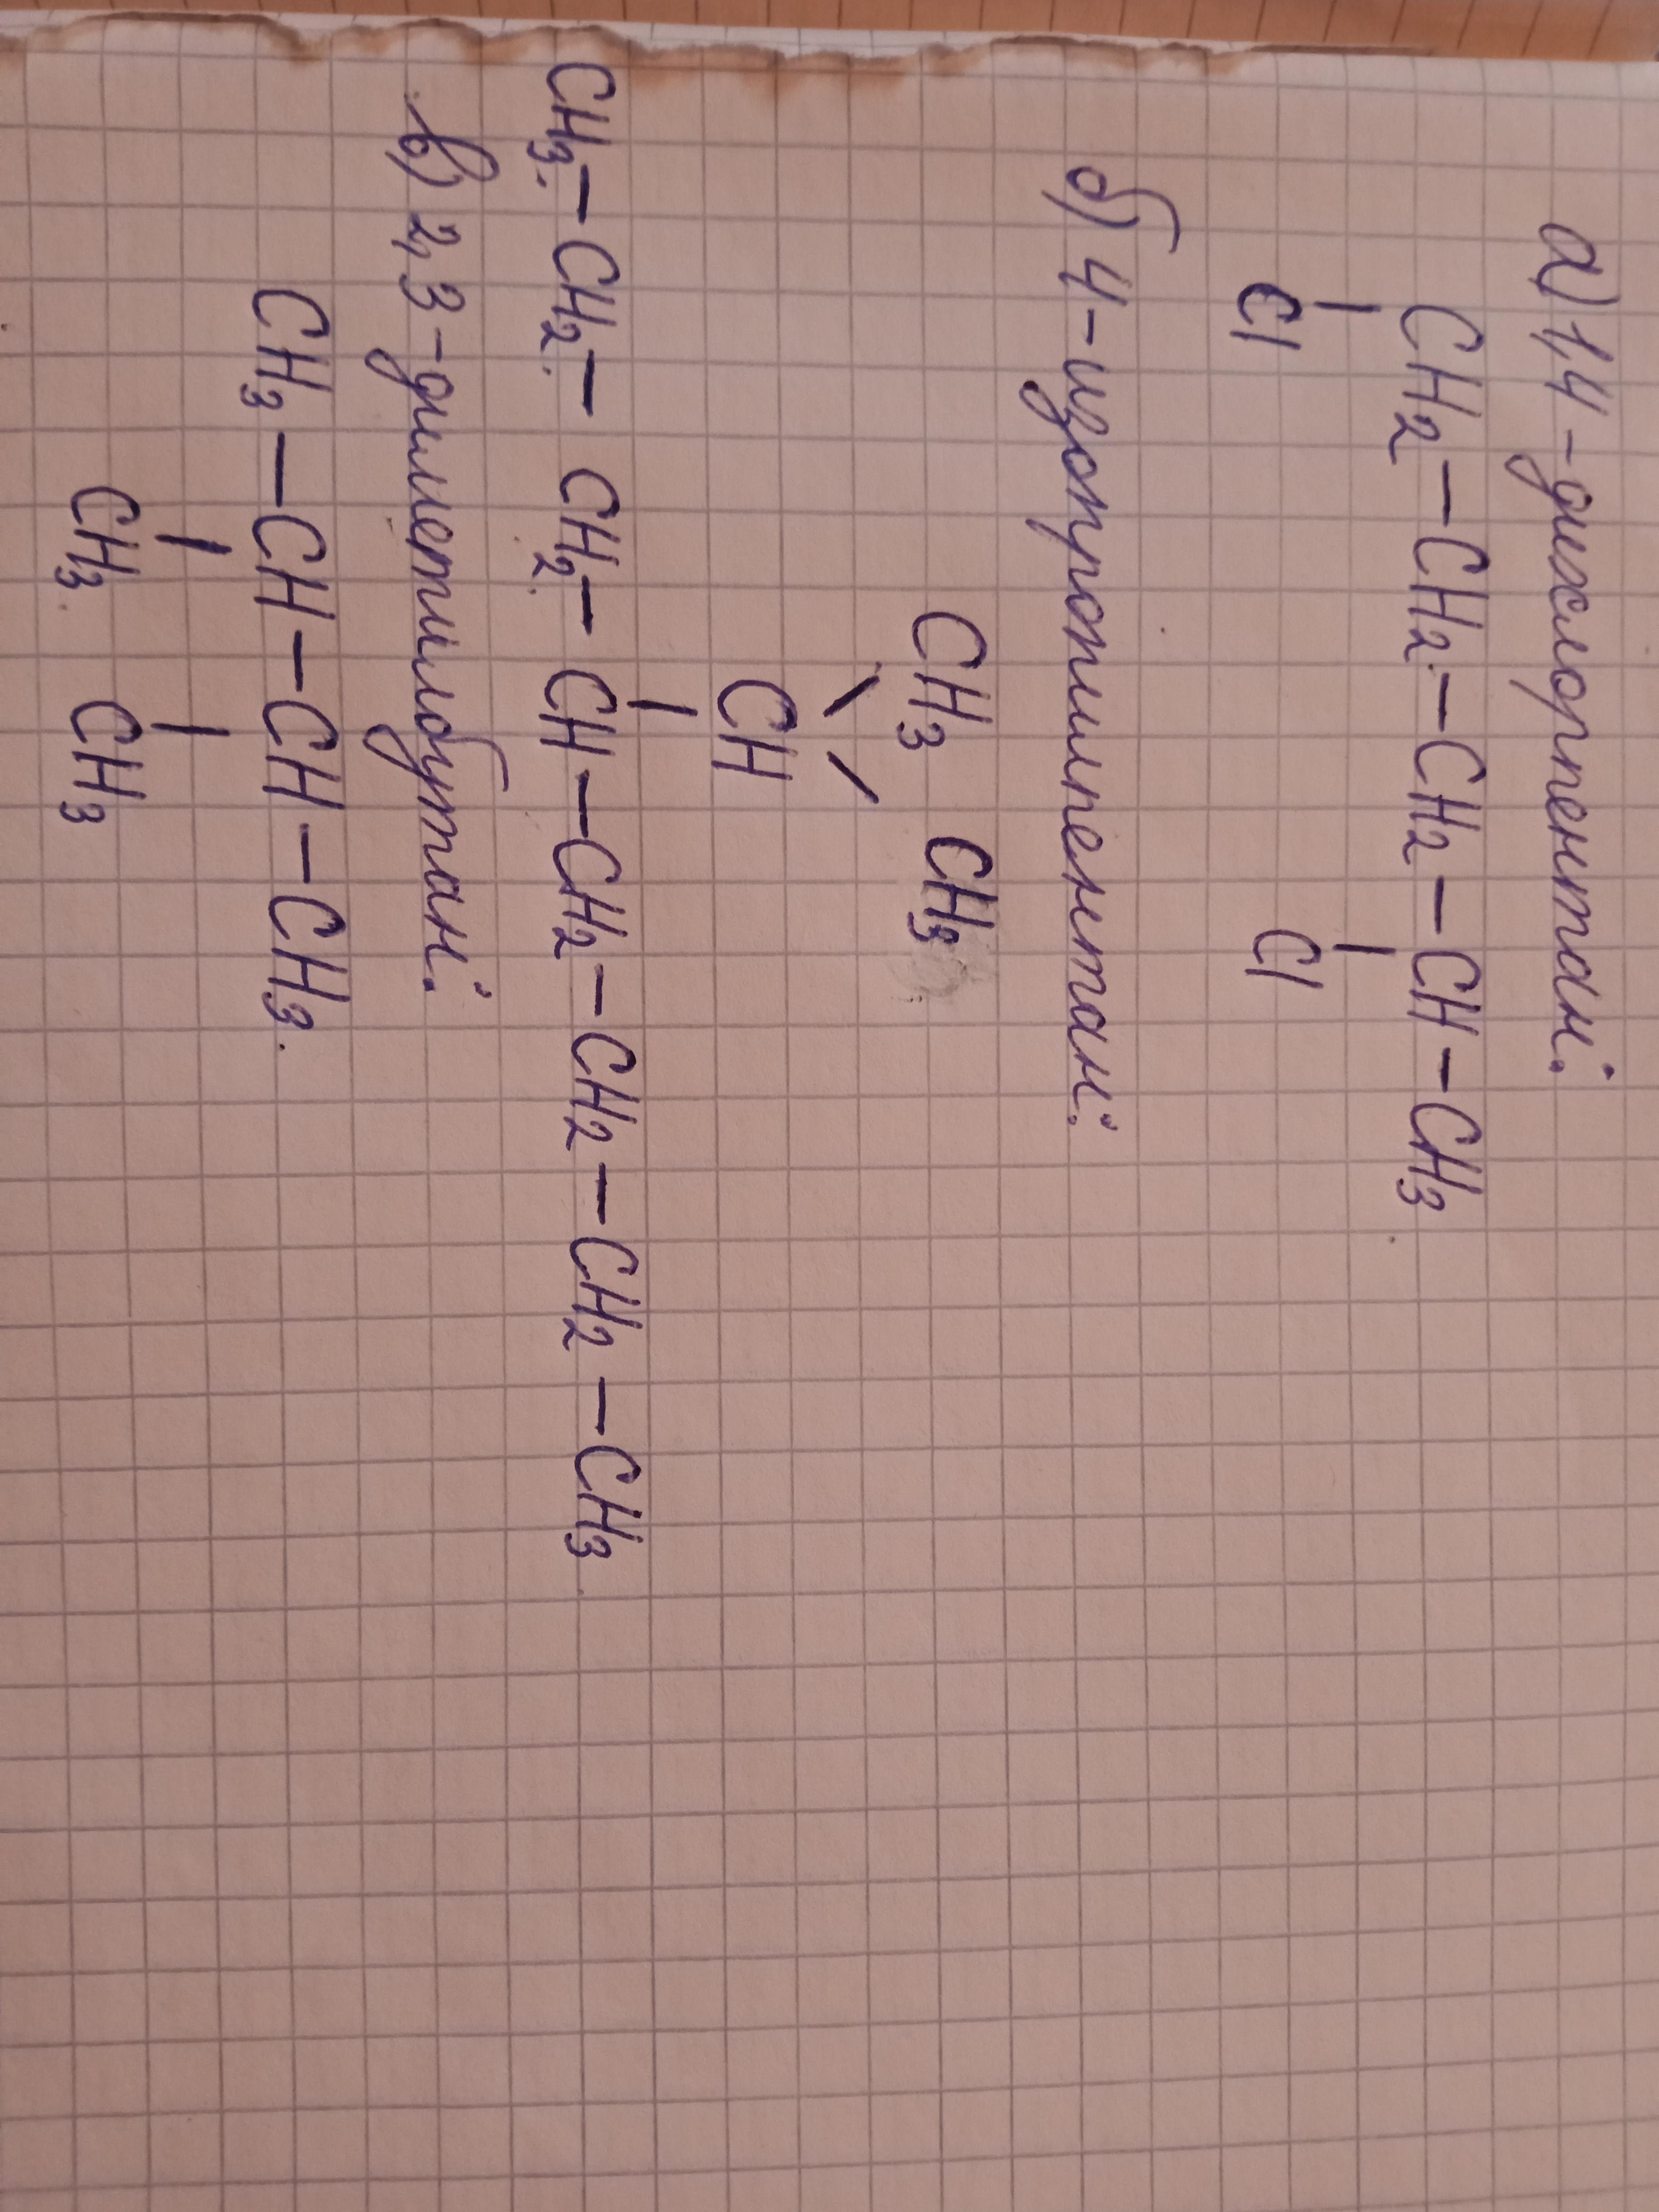 а) 1,4-дихлорпентан:
CH2 — CH2 — CH2 — CH — CH3
Cl Cl
б) 4-изопропилпентан:
CH3 CH3
CH
CH3 — CH2 — CH2 — CH — CH2 — CH2 — CH2 — CH3
в) 2,3-диметилбутан:
CH3 — CH — CH — CH3.
CH3 CH3